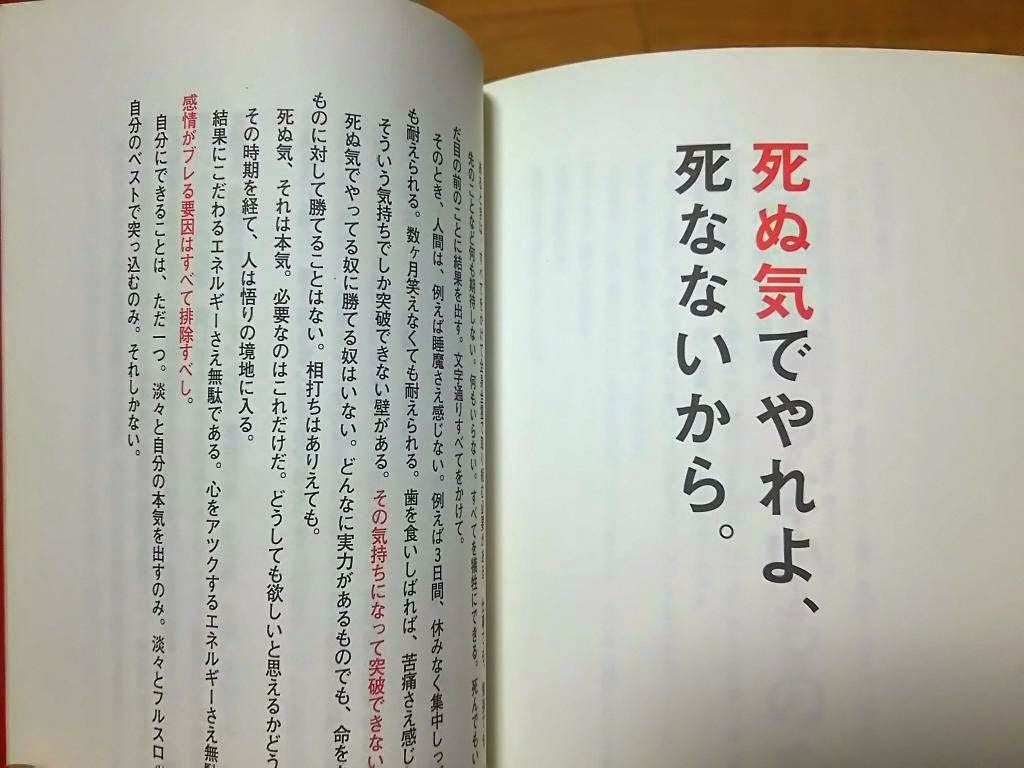 死ぬ気でやれよ、
死なないから。
先のことなど何も期待しない。何もいらない。すべてを犠牲にできる。死んでもい
だ目の前のことに結果を出す。文字通りすべてをかけて。
そのとき、人間は、例えば睡魔さえ感じない。例えば3日間、休みなく集中しっ
も耐えられる。数ヶ月笑えなくても耐えられる。歯を食いしばれば、苦痛さえ感じ
そういう気持ちでしか突破できない壁がある。その気持ちになって突破できない
死ぬ気でやってる奴に勝てる奴はいない。どんなに実力があるものでも、命を
ものに対して勝てることはない。相打ちはありえても。
死ぬ気、それは本気。必要なのはこれだけだ。どうしても欲しいと思えるかどう
その時期を経て、人は悟りの境地に入る。
結果にこだわるエネルギーさえ無駄である。心をアツクするエネルギーさえ無
感情がブレる要因はすべて排除すべし。
自分にできることは、ただ一つ。淡々と自分の本気を出すのみ。淡々とフルスロ
自分のベストで突っ込むのみ。それしかない。